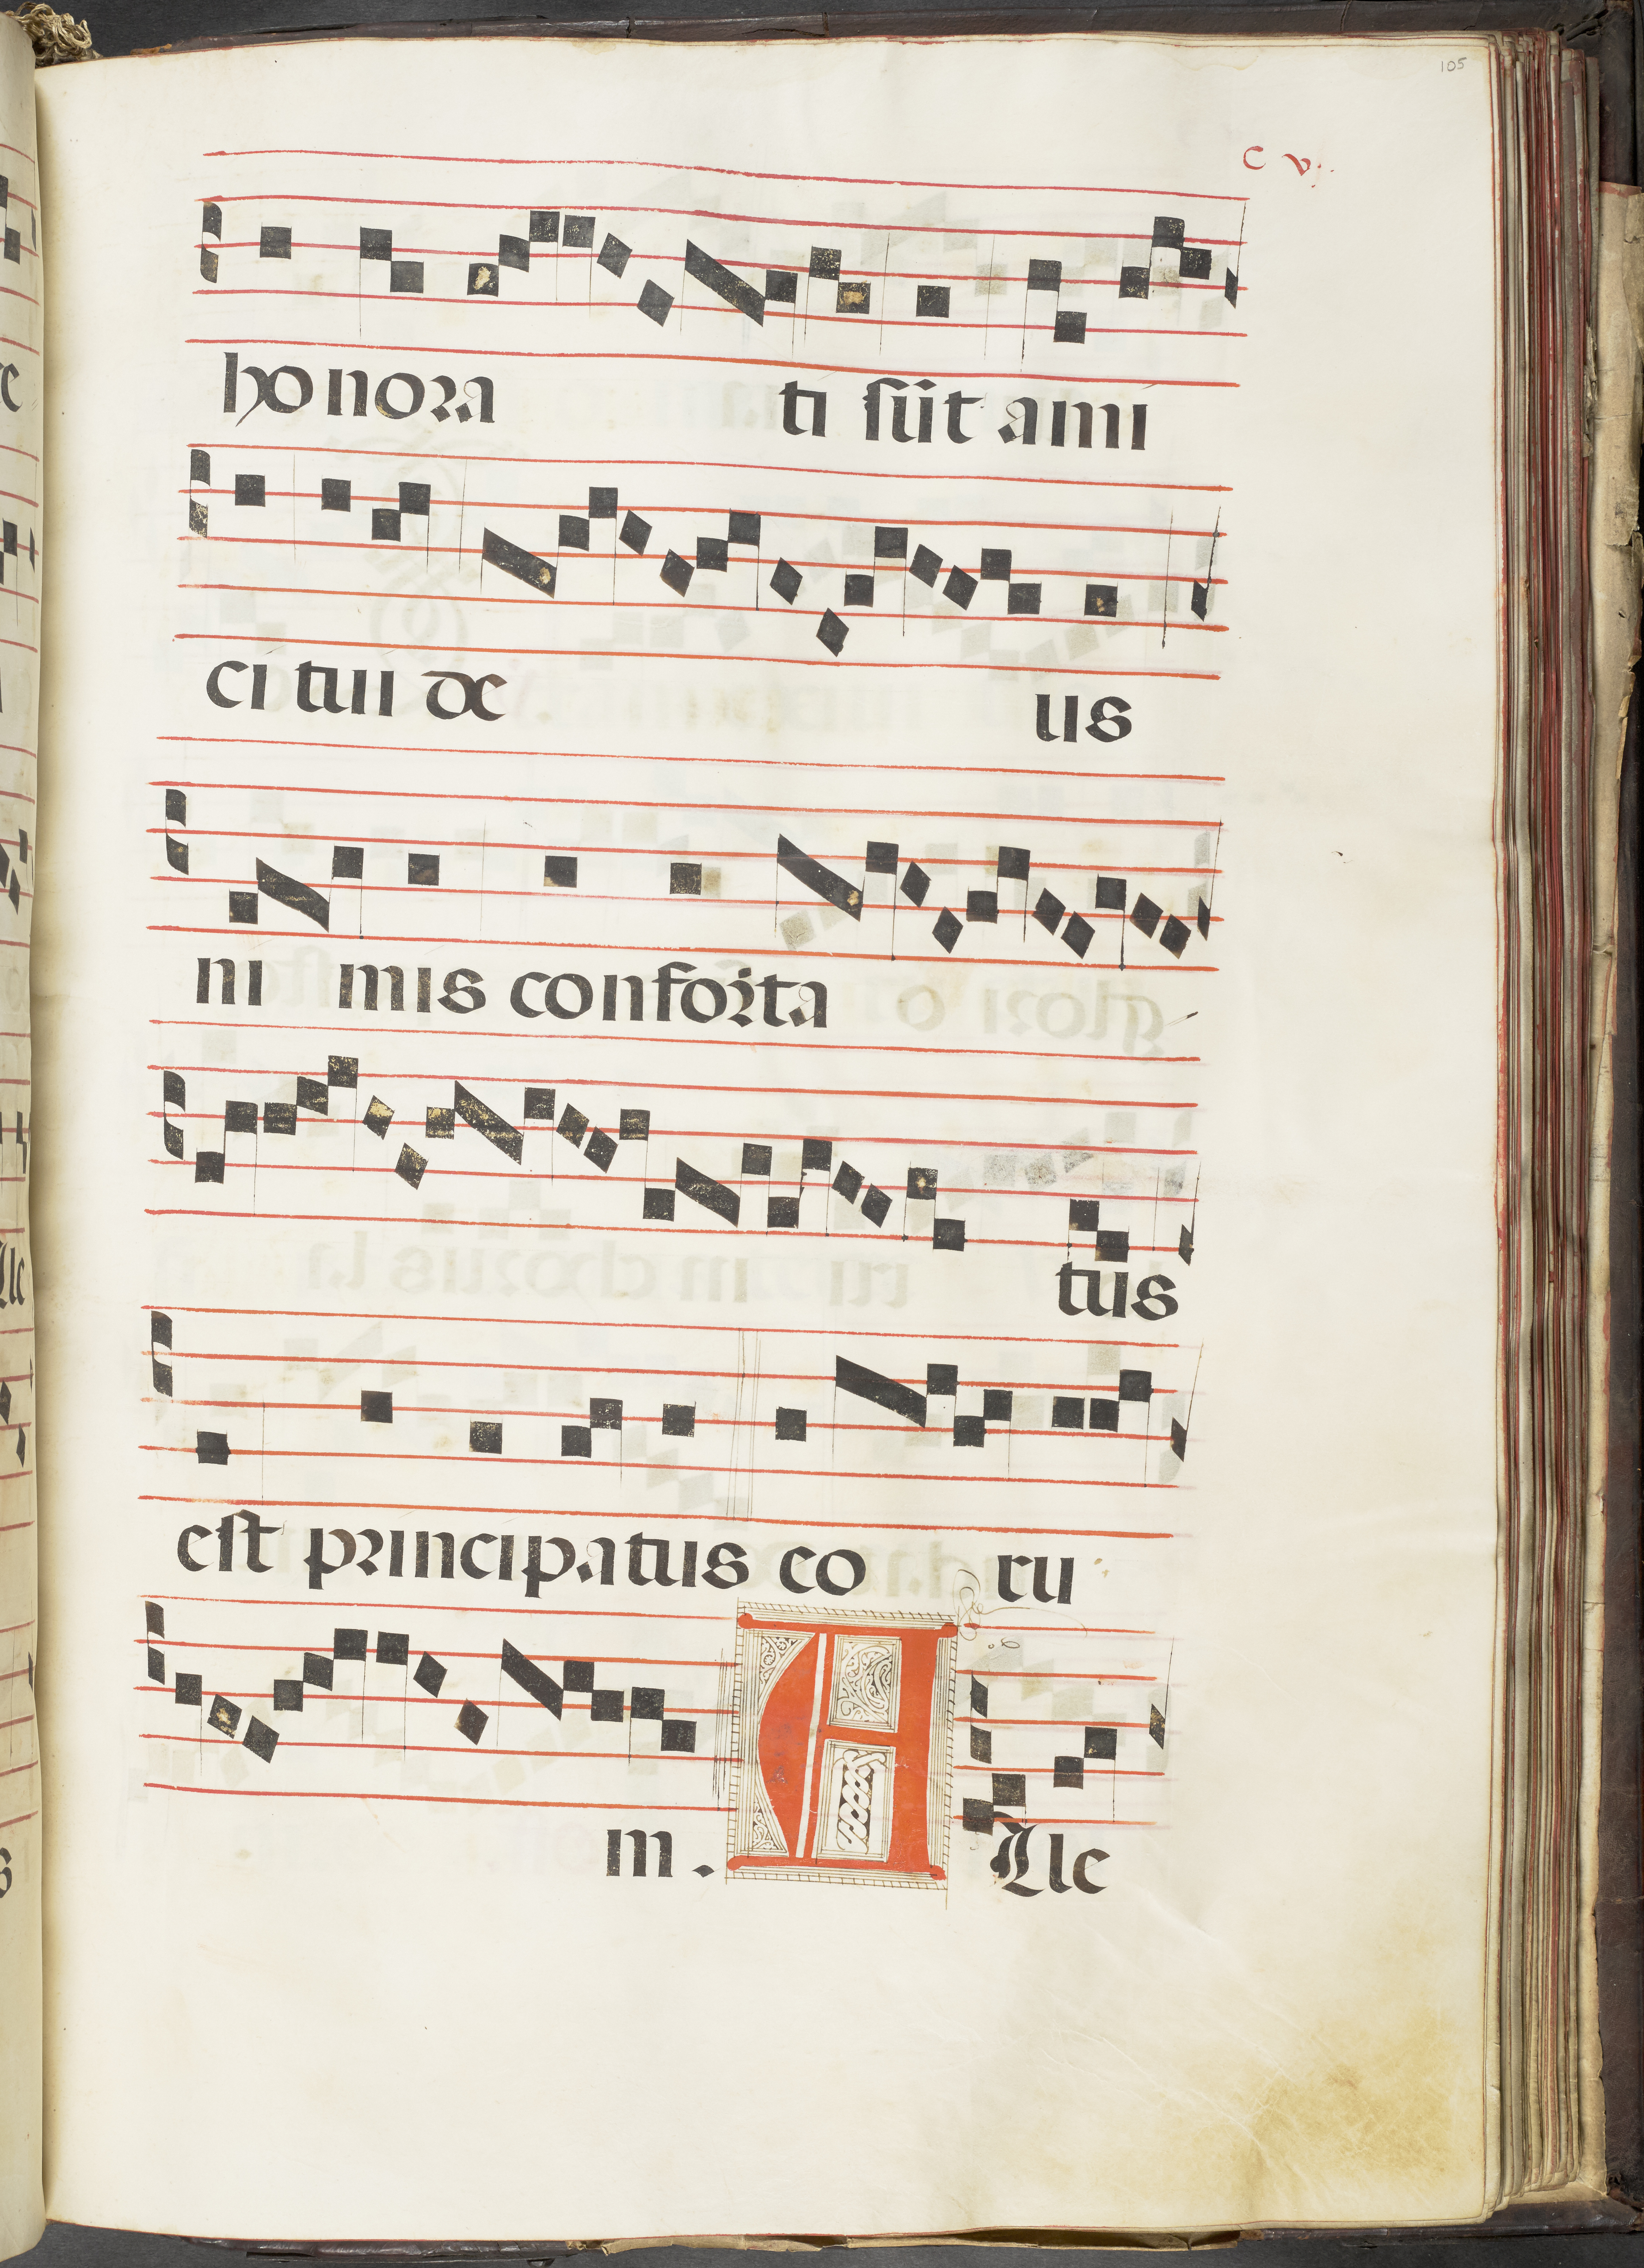 105
C v.
honora ti sūt ami
ci tui de us
ni mis conforta
tus
est principatus eo ru
m. A lle